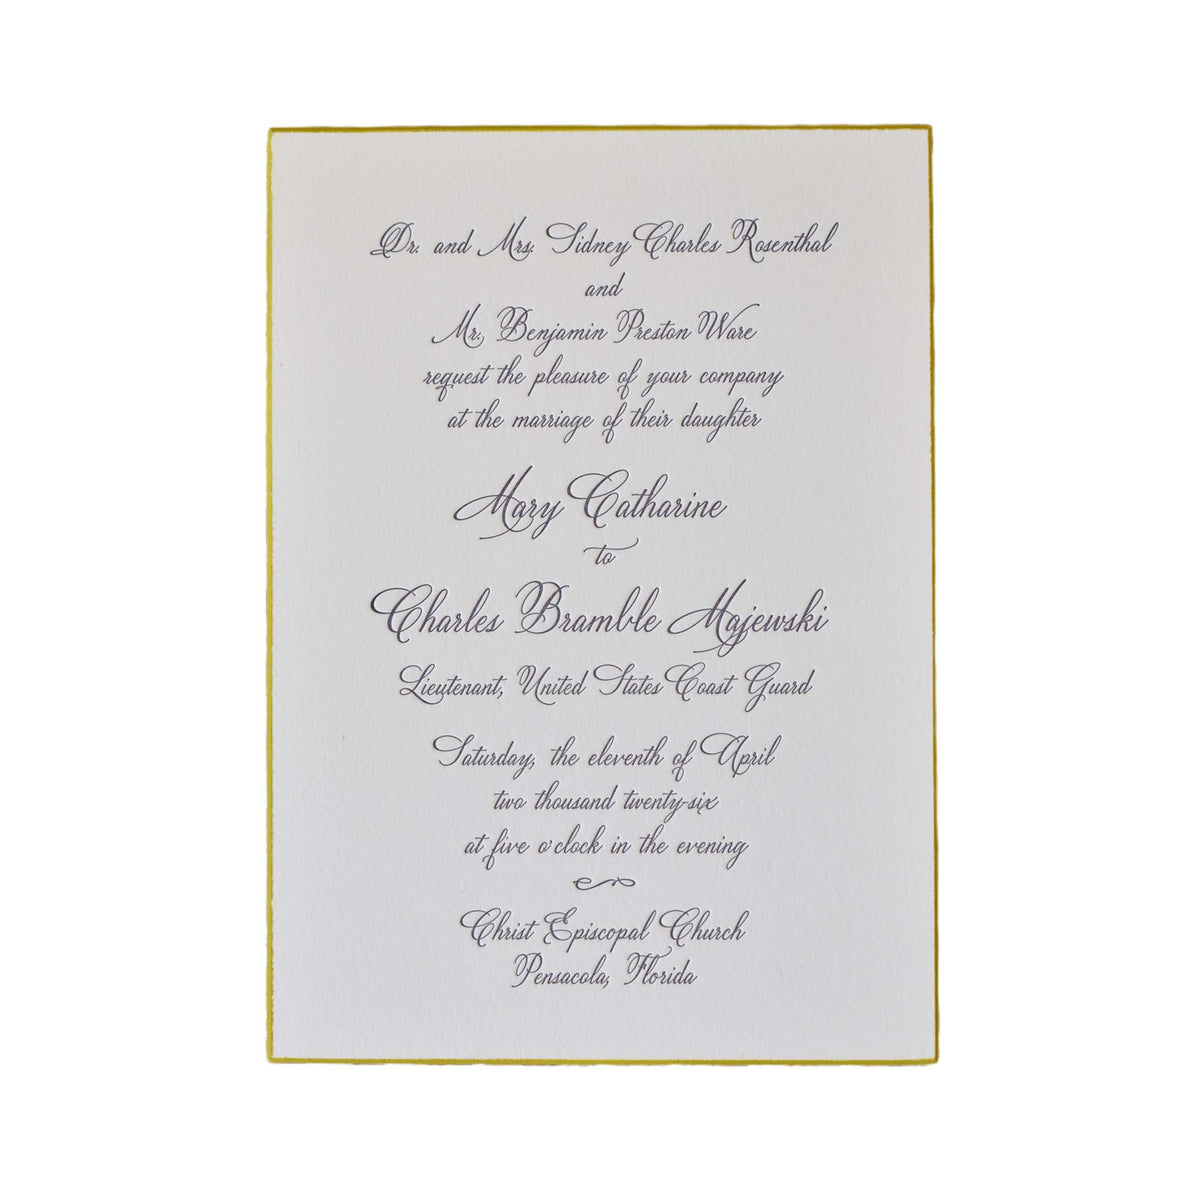 Dr. and Mrs. Sidney Charles Rosenthal
and
Mr. Benjamin Preston Ware
request the pleasure of your company
at the marriage of their daughter
Mary Catharine
to
Charles Bramble Majewski
Lieutenant, United States Coast Guard
Saturday, the eleventh of April
two thousand twenty-six
at five o'clock in the evening
Christ Episcopal Church
Pensacola, Florida